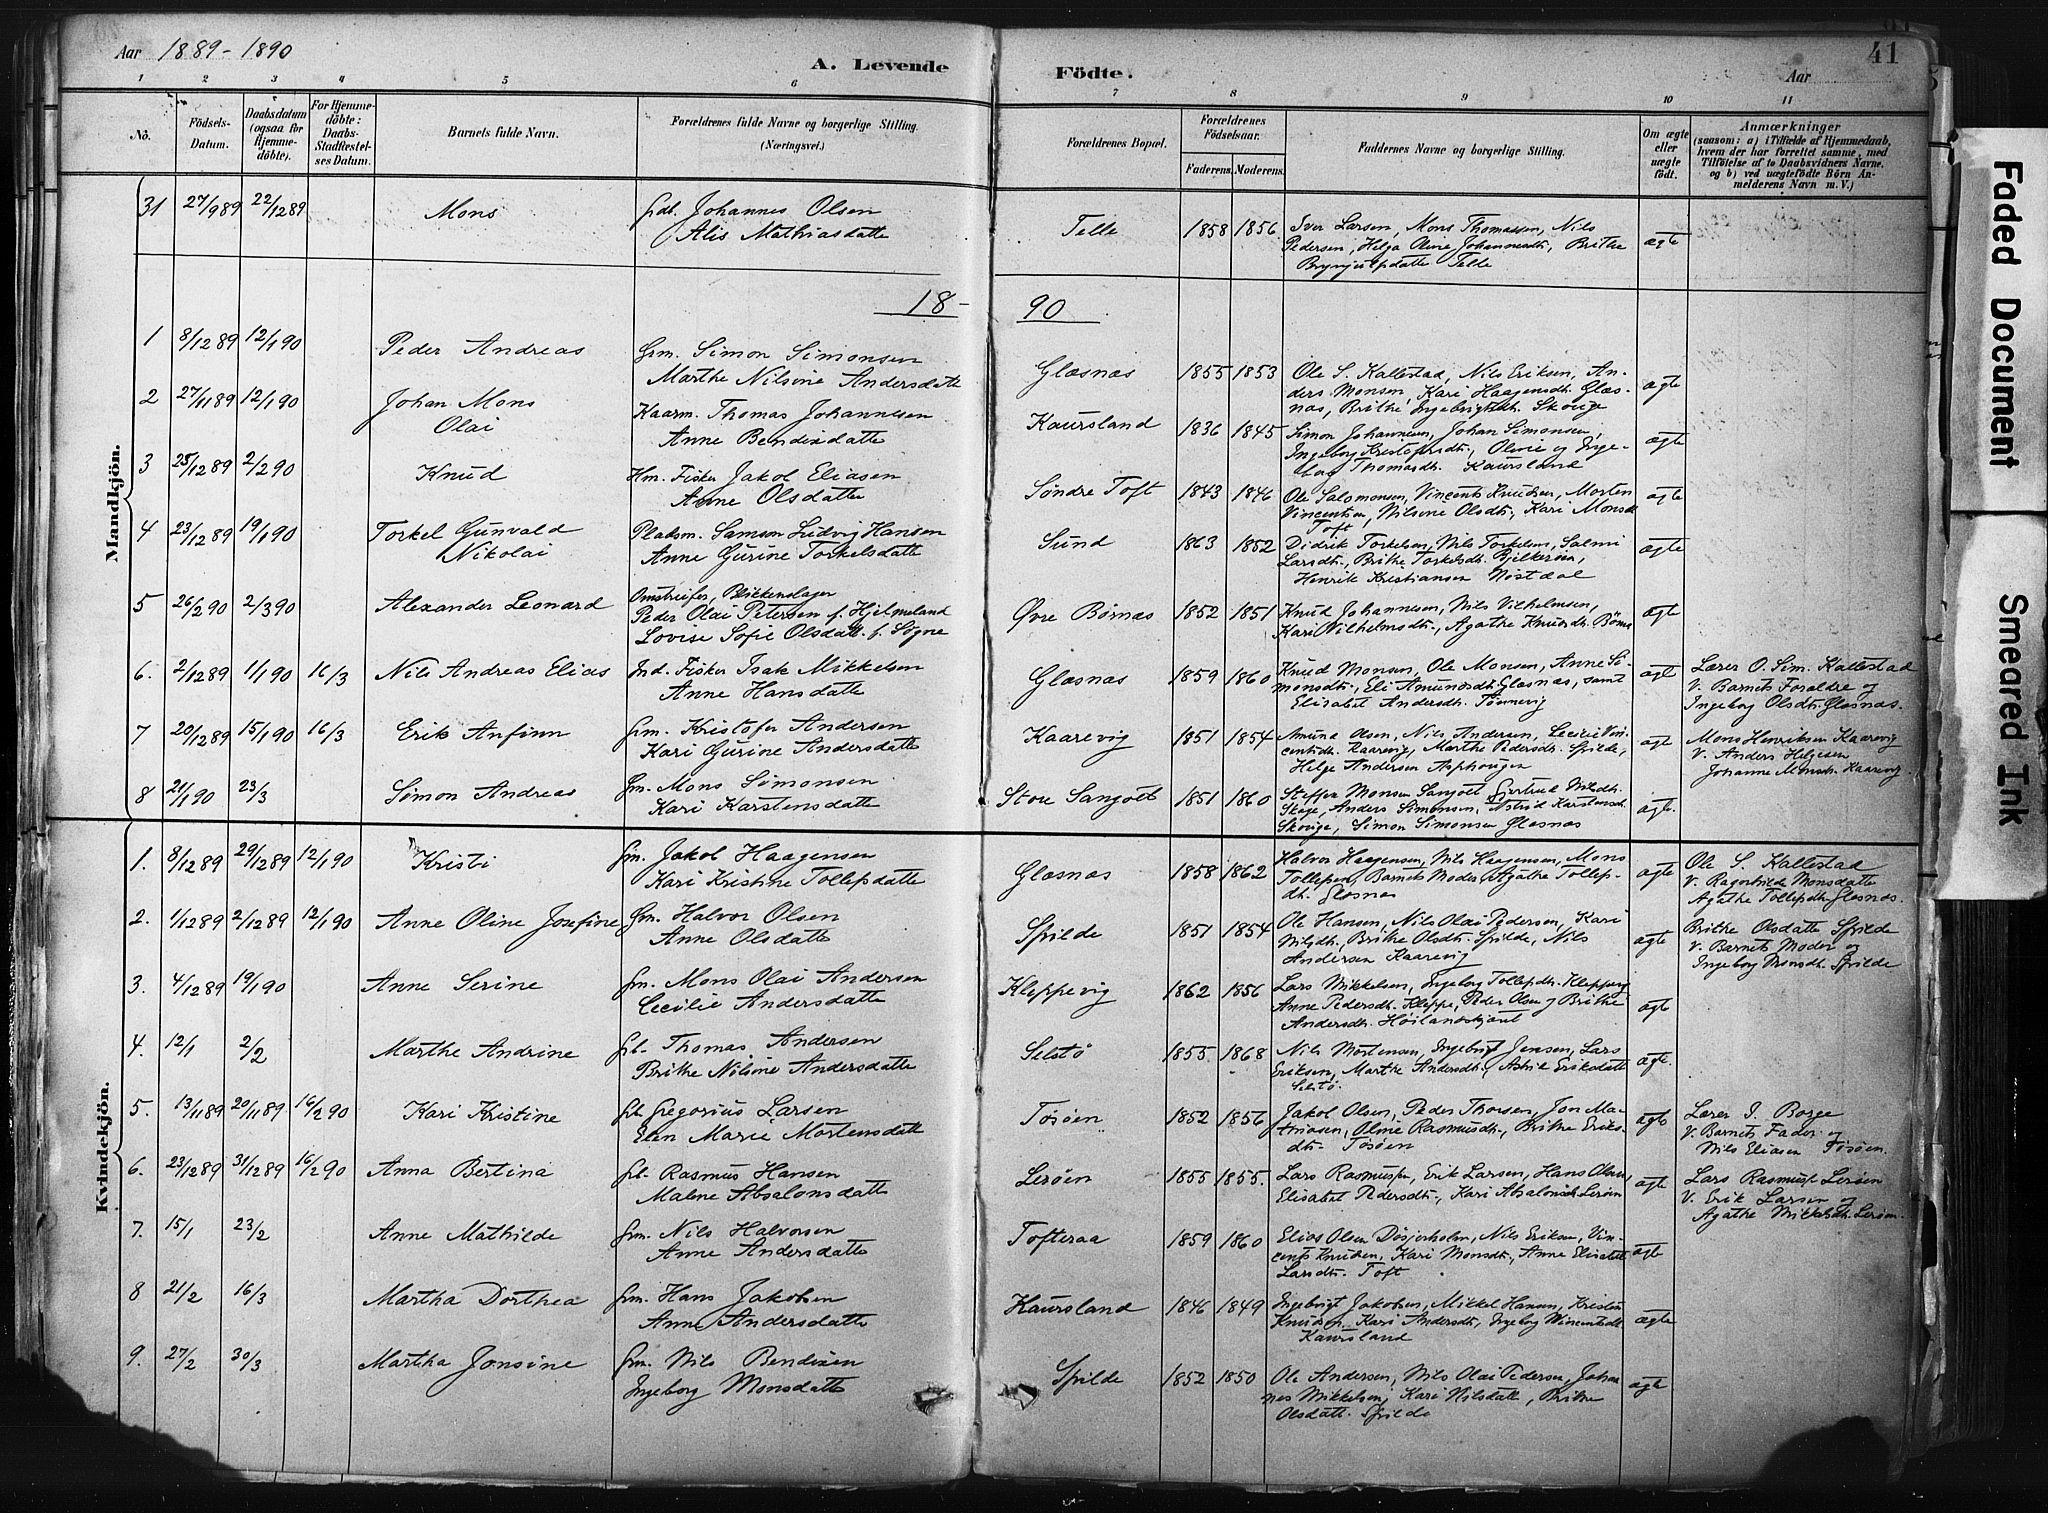 Aar 1889-1890
A. Levende Födte.
Aar
41
1 2 3 4 5 6 7 8 9 10 11
No.
Födsels-Datum.
Daabsdatum (ogsaa for Hjemmedöbte).
For Hjemmedöbte: Daabs-Stadfæstelses Datum.
Barnets fulde Navn.
Forældrenes fulde Navne og borgerlige Stilling. (Næringsvei.)
Forældrenes Bopæl.
Forældrenes Födselsaar.
Faderens. Moderens.
Faddernes Navne og borgerlige Stilling.
Om ægte eller uægte födt.
Anmærkninger
(saasom: a) i Tilfælde af Hjemmedaab, hvem der har forrettet samme, med Tilföielse af to Daabsvidners Navne. og b) ved uægtefödte Börn Anmelderens Navn m. V.)
Mandkjön.
31 27/9 89 22/12 89 Mons
Johannes Olsen
Alis Mathiasdatte
Telle 1858 1856
Iver Larsen, Mons Thomassen, Nils
Pedersen, Helga Oline Johannesdt., Brithe
Brynjulfsdatte Telle
ægte
18-90
1 8/12 89 12/1 90 Peder Andreas
Grm. Simon Simonsen
Marthe Nilsine Andersdatte
Glæsnæs 1855 1853
Ole S. Kallestad, Nils Eriksen, An-
ders Monsen, Kari Haagensdt. Glæs-
næs, Brithe Ingebrigtsdt. Skouge
ægte
2 27/11 89 12/1 90 Johan Mons
Olai
Kaarm. Thomas Johannesen
Anne Bendixdatte
Kaursland 1836 1845
Simon Johannesen, Johan Simonsen,
Ingeborg Kristofersdt., Oline og Inge-
borg Thomasdt. Kaursland
ægte
3 25/12 89 2/2 90 Knud
Hm. Fisker Jakob Eliasen
Anne Olsdatte
Søndre Toft 1843 1846
Ole Salomonsen, Vincents Knudsen, Morten
Vincentsen, Nilsine Olsdt., Kari Monsdt.
Toft
ægte
4 23/12 89 19/1 90 Torkel Gunvald
Nikolai
Pladsm. Samson Ludvig Hansen
Anne Gurine Torkelsdatte
Sund 1863 1852
Didrik Torkelsen, Nils Torkelsen, Salmi
Larsdt., Brithe Torkelsdt. Bjelkerøen,
Henrik Kristiansen Nøstdal
ægte
5 26/2 90 2/3 90 Alexander Leonard
Omstreifer, Blikkenslager
Peder Olai Petersen f. Hjelmeland
Lovise Sofie Olsdatt. f. Søgne
Øvre Børnæs 1852 1851
Knud Johannesen, Nils Vilhelmsen,
Kari Vilhelmsdt., Agathe Knudsdt. Børnæs
ægte
6. 2/12 89 1/1 90 16/3 Nils Andreas Elias
Ind. Fisker Isak Mikkelsen
Anne Hansdatte
Glæsnæs 1859 1860
Knud Monsen, Ole Monsen, Anne Si-
monsdt., Eli Amundsdt. Glæsnæs, samt
Elisabet Andersdt. Tømmervig
ægte
Lærer O. Sim. Kallestad
V. Barnets Forældre og
Ingeborg Olsdt. Glæsnæs.
7 20/12 89 15/1 90 16/3 Erik Anfinn
Grm. Kristofer Andersen
Kari Gurine Andersdatte
Kaarevig 1851 1854
Amund Olsen, Nils Andersen, Cecilie Vin-
centsdt. Kaarevig, Marthe Pedersdt. Spilde,
Helge Andersen Asphaugen
ægte
Mons Henriksen Kaarevig
V. Anders Helgesen
Johanne Monsdt. Kaarevig.
8 21/1 90 23/3 Simon Andreas
Grm. Mons Simonsen
Kari Karstensdatte
Store Sangolt 1851 1860
Steffen Monsen Sangolt, Gjertrud Nilsdt.
Skoge, Anders Simonsen, Astrid Karstensdt.
Skouge, Simon Simonsen Glæsnæs
ægte.
Kvindekjön.
1. 8/12 89 29/12 89 12/1 90 Kristi
Grm. Jakob Haagensen
Kari Kristine Tollefsdatte
Glæsnæs 1858 1862
Halvor Haagensen, Nils Haagensen, Mons
Tollefsen, Barnets Moder, Agathe Tollefs-
dt. Glæsnæs
ægte
Ole S. Kallestad
V. Ragnhilde Monsdatte
Agathe Tollefsdt. Glæsnæs.
2. 1/12 89 2/12 89 12/1 90 Anne Oline Josefine
Grm. Halvor Olsen
Anne Olsdatte
Spilde 1851 1854
Ole Hansen, Nils Olai Pedersen, Kari
Nilsdt., Brithe Olsdt. Spilde, Nils
Andersen Kaarevig
ægte
Brithe Olsdatte Spilde
V. Barnets Moder og
Ingeborg Monsdt. Spilde
3. 4/12 89 19/1 90 Anne Serine
Grm. Mons Olai Andersen
Cecilie Andersdatte
Kleppevig 1862 1856
Lars Mikkelsen, Ingeborg Tollefsdt. Kleppevig
Anne Pedersdt. Kleppe, Peder Olsen og Brithe
Andersdt. Høilandskjæret
ægte
4. 12/1 2/2 Marthe Andrine
Grb. Thomas Andersen
Brithe Nilsine Andersdatte
Selstø 1855 1868
Nils Mortensen, Ingebrigt Jensen, Lars
Eriksen, Marthe Andersdt., Astrid Eriksdatte
Selstø.
ægte.
5. 13/11 89 20/11 89 16/2 90 Kari Kristine
Grb. Gregorius Larsen
Elen Marie Mortensdatte
Tøsøen 1852 1856
Jakob Olsen, Peder Thorsen, Jon Ma-
thiasen, Oline Rasmusdt., Brithe Eriks-
dt. Tøsøen
ægte
Lærer I. Borge
V. Barnets Fader og
Nils Eliasen Tøsøen.
6. 23/12 89 31/12 89 16/2 90 Anna Bertina
Grb. Rasmus Hansen
Malene Absalonsdatte
Lerøen 1855 1855.
Lars Rasmusen, Erik Larsen, Hans Olsen,
Elisabet Pedersdt., Kari Absalonsdt. Lerøen
ægte
Lars Rasmusen Lerøen
V. Erik Larsen og
Agathe Mikkelsdt. Lerøen.
7. 15/1 23/2 Anne Mathilde
Grm. Nils Halvorsen
Anne Andersdatte
Tofteraa 1859 1860
Elias Olsen Døsjerholm, Nils Eriksen, Vin-
cents Knudsen, Kari Monsdt., Anne Elisabet
Larsdt. Toft
ægte
8 21/2 16/3 Martha Dorthea
Grm. Hans Jakobsen
Anne Andersdatte
Kaursland 1846 1849
Ingebrigt Jakobsen, Mikkel Hansen, Kristen
Knudsen, Kari Andersdt., Ingeborg Vincentsdt.
Kaursland
ægte
9. 27/2 30/3 Martha Jonsine
Grm. Nils Bendixen
Ingeborg Monsdatte
Spilde 1852 1850
Ole Andersen, Nils Olai Pedersen, Johan-
nes Mikkelsen, Kari Nilsdatte, Brithe
Olsdatt. Spilde
ægte
Faded Document
Smeared Ink